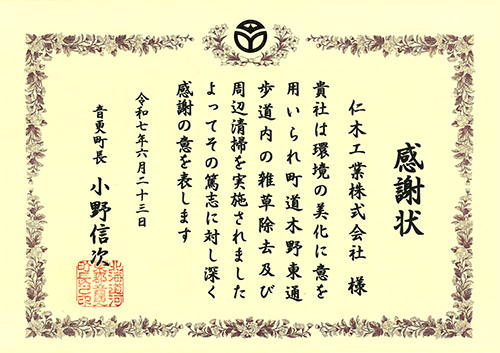 感謝状
仁木工業株式会社 様
貴社は環境の美化に意を
用いられ町道木野東通
歩道内の雑草除去及び
周辺清掃を実施されました
よってその篤志に対し深く
感謝の意を表します
令和七年六月二十三日
音更町長 小野信次